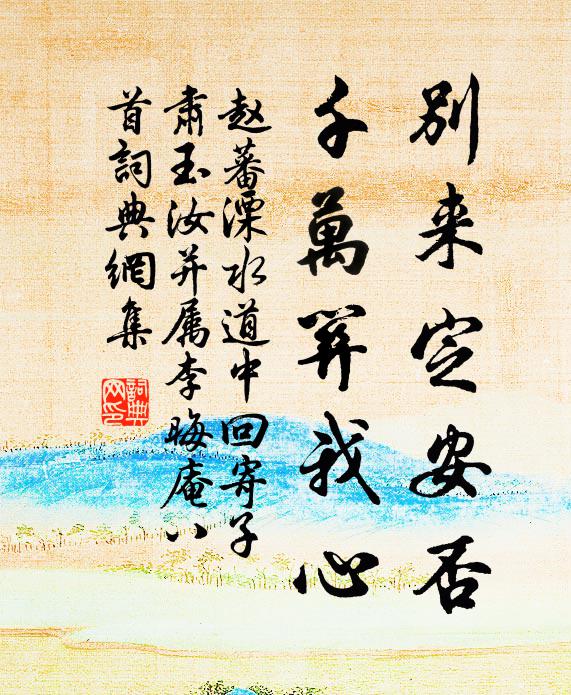 別来定安否
千萬我心
赵蕃溧水道中回寄子
肅玉汝并属李晦庵八
首詞典網集
詞典网印